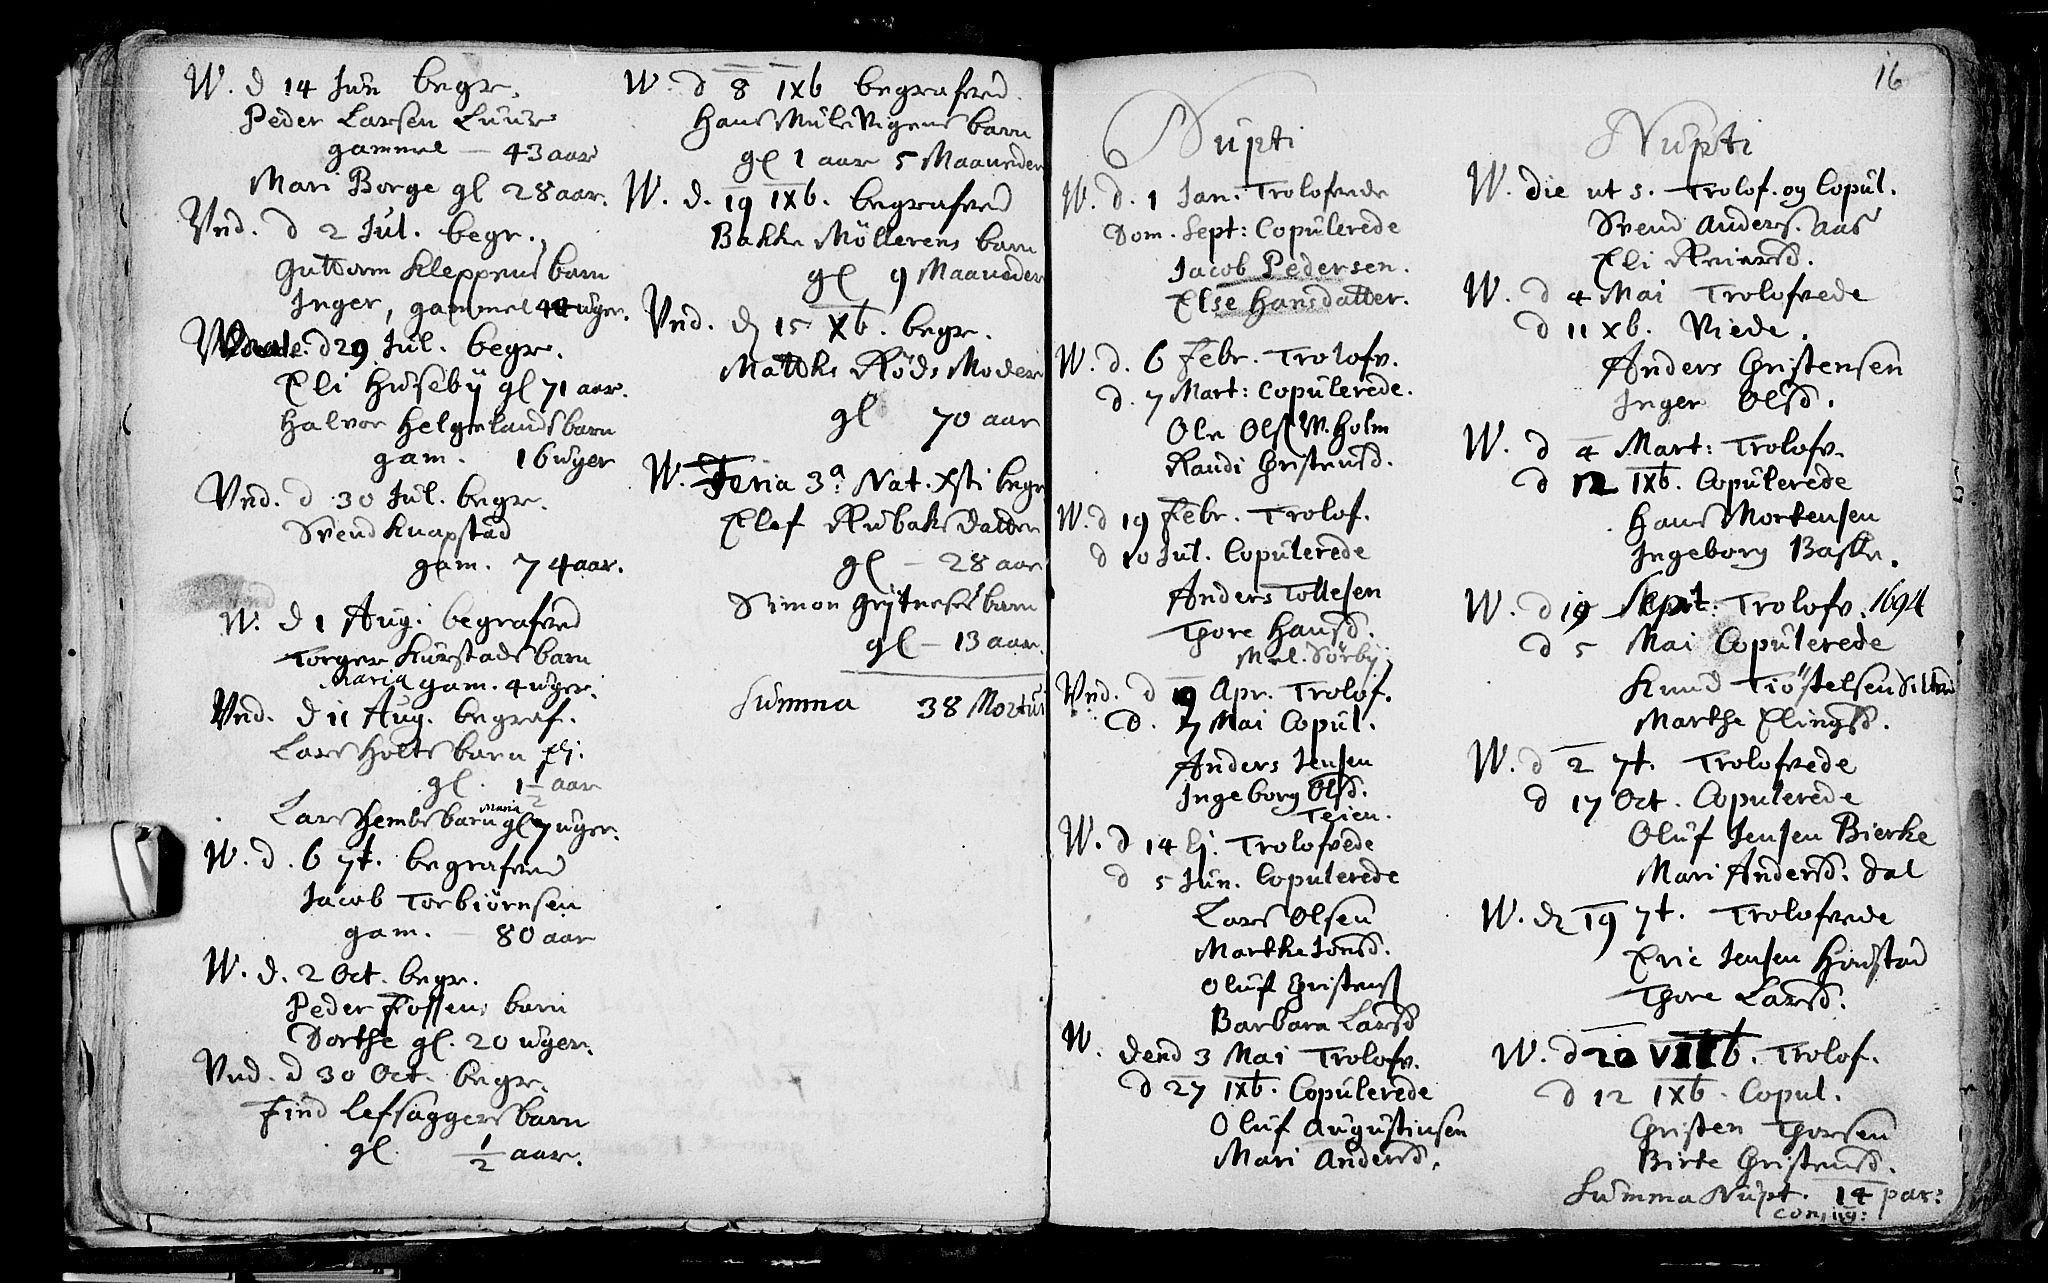 W. d 14 Jun begr.
Peder Larsen Luur
gammel — 43 aar
Mari Borge gl 28 aar.
Vnd. d 2 Jul. begr.
Guttorm Kleppens barn
Inger, gammel 44 uger.
d 29 Jul. begr.
Eli Huseby gl 71 aar.
Halvor Helgelands barn
gam. 16 uger
Vnd. d 30 Jul. begr.
Svend Knapstad
gam. 74 aar.
W. d 1 Aug: begrafved
Torger Kurstads barn
Maria gam. 4 uger.
Vnd. d 11 Aug. begraf.
Lars Holts barn Eli.
gl. 1 1/2 aar
Lars Hembs barn Maria gl 7 uger.
W. d. 6 7t. begrafved
Jacob Torbiörnsen
gam. — 80 aar
W. d. 2 Oct. begr.
Peder Fossens barn
Dorthe gl. 20 uger.
Vnd. d 30 Oct. begr.
Find Lefsaggers barn
gl. 1/2 aar.
W. d 8 IXb begrafved.
Hans Mule Vigens barn
gl 1 aar 5 Maaneder
W. d. 19 IXb. begrafved
Bakke Möllerens barn
gl 9 Maaneder
Vnd. d 15 Xb. begr.
Röds Moder
gl 70 aar
W. Feria 3a. Nat. Xsti begr
Elef datter
gl — 28 aar
Simon barn
gl — 13 aar.
Summa 38 Mortui
16
Nupti
W. d. 1 Jan: Trolofvede
Dom. Sept: Copulerede
Jacob Pedersen.
Else Hansdatter.
W. d. 6 Febr. Trolofv.
d. 7 Mart: Copulerede.
Ole Ols W. Holm
Randi Christensd.
W. d 19 Febr. Trolof.
d 10 Jul. Copulerede
Anders Tollesen
Thore Hansd.
Mel. Sörby
Vnd. d 19 Apr. Trolof.
d. 7 Mai Copul.
Anders Jensen
Ingeborg Olsd.
Teien.
W. d 14 Ej. Trolofvede
d 5 Jun. Copulerede
Lars Olsen
Marthe Jonsd.
Oluf Christens
Barbara Larsd
W. dend 3 Mai Trolofv.
d 27 IXb. Copulerede
Oluf Augustinsen
Mari Andersd.
Nupti
W. die ut s. Trolof. og Copul.
Svend Anders. Aas
Eli Reiersd.
W. d 4 Mai Trolofvede
d 11 Xb. Viede.
Anders Christensen
Inger Olsd.
W. d 4 Mart: Trolofv.
d 12 IXb. Copulerede
Hans Mortensen
Ingeborg Baske.
W. d 19 Sept: Trolofv. 1694
d 5 Mai Copulerede
Knud Tiöstelsen
Marthe Elingsd.
W. d 2 7t. Trolofvede
d 17 Oct. Copulerede
Oluf Jensen Bierke
Mari Andersd. Dal
W. d 19 7t. Trolofvede
Eric Jensen
Thore Larsd.
W. d 20 VIIIb. Trolof.
d 12 IXb. Copul.
Christen Thorsen
Birte Christensd.
Summa Nupt. 14 par:
coniug: